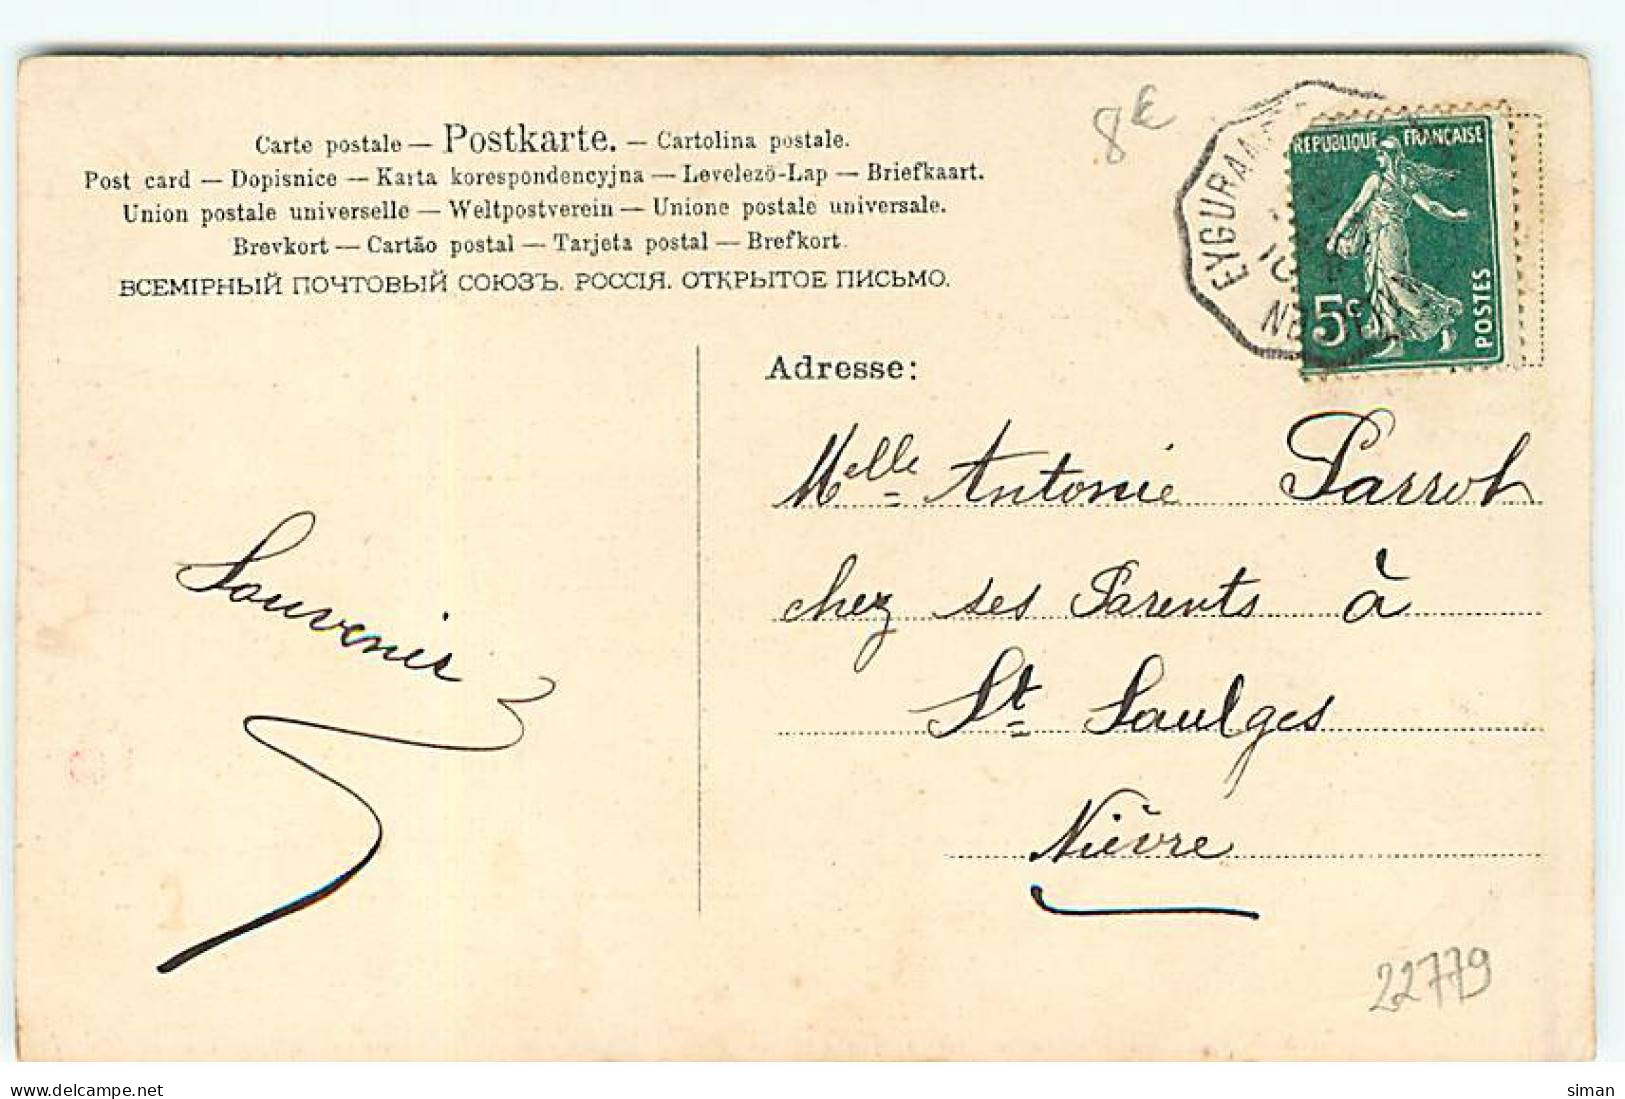 Carte postale — Postkarte. — Cartolina postale.
Post card — Dopisnice — Karta korespondencyjna — Levelező-Lap — Briefkaart.
Union postale universelle — Weltpostverein — Unione postale universale.
Brevkort — Cartão postal — Tarjeta postal — Brefkort.
ВСЕМІРНЫЙ ПОЧТОВЫЙ СОЮЗЪ. РОССІЯ. ОТКРЫТОЕ ПИСЬМО.
8€
REPUBLIQUE FRANÇAISE
5c
POSTES
Adresse:
Melle Antonie Parrot
chez ses Parents à
St Saulges
Nièvre
Souvenir
22779
www.delcampe.net
siman